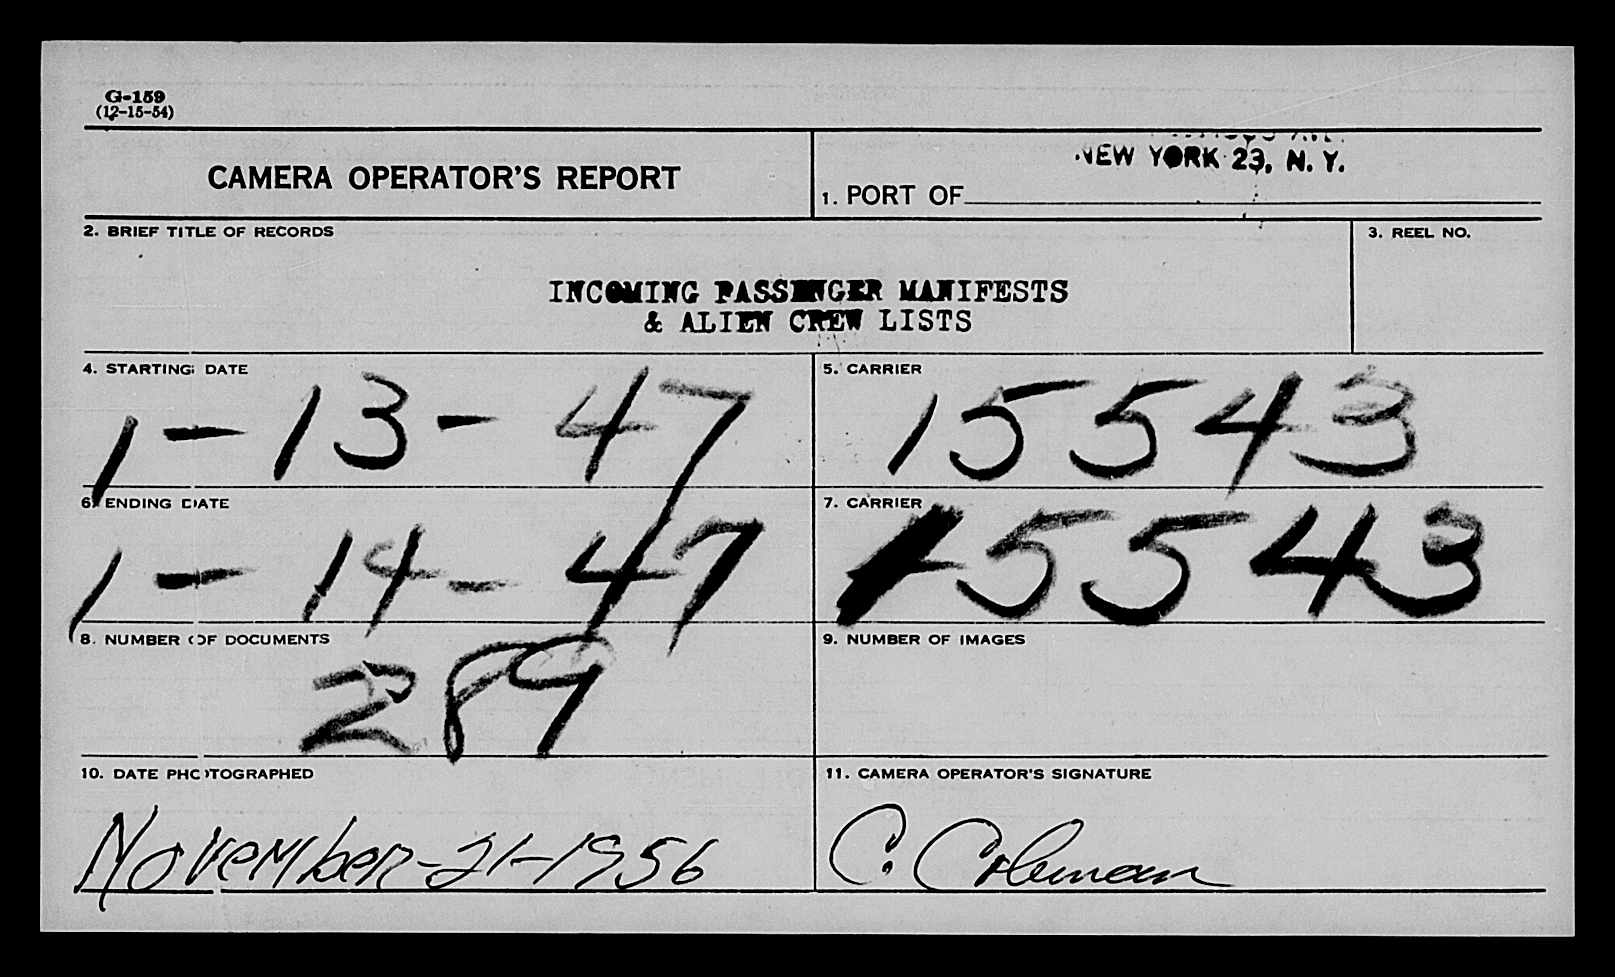 G-159
(12-15-54)
CAMERA OPERATOR'S REPORT
NEW YORK 23, N. Y.
1. PORT OF
2. BRIEF TITLE OF RECORDS
3. REEL NO.
INCOMING PASSENGER MANIFESTS
& ALIEN CREW LISTS
4. STARTING DATE
5. CARRIER
1-13-47
15543
6. ENDING DATE
7. CARRIER
1-14-47
15543
8. NUMBER OF DOCUMENTS
9. NUMBER OF IMAGES
289
10. DATE PHOTOGRAPHED
11. CAMERA OPERATOR'S SIGNATURE
November-21-1956
C. Coleman